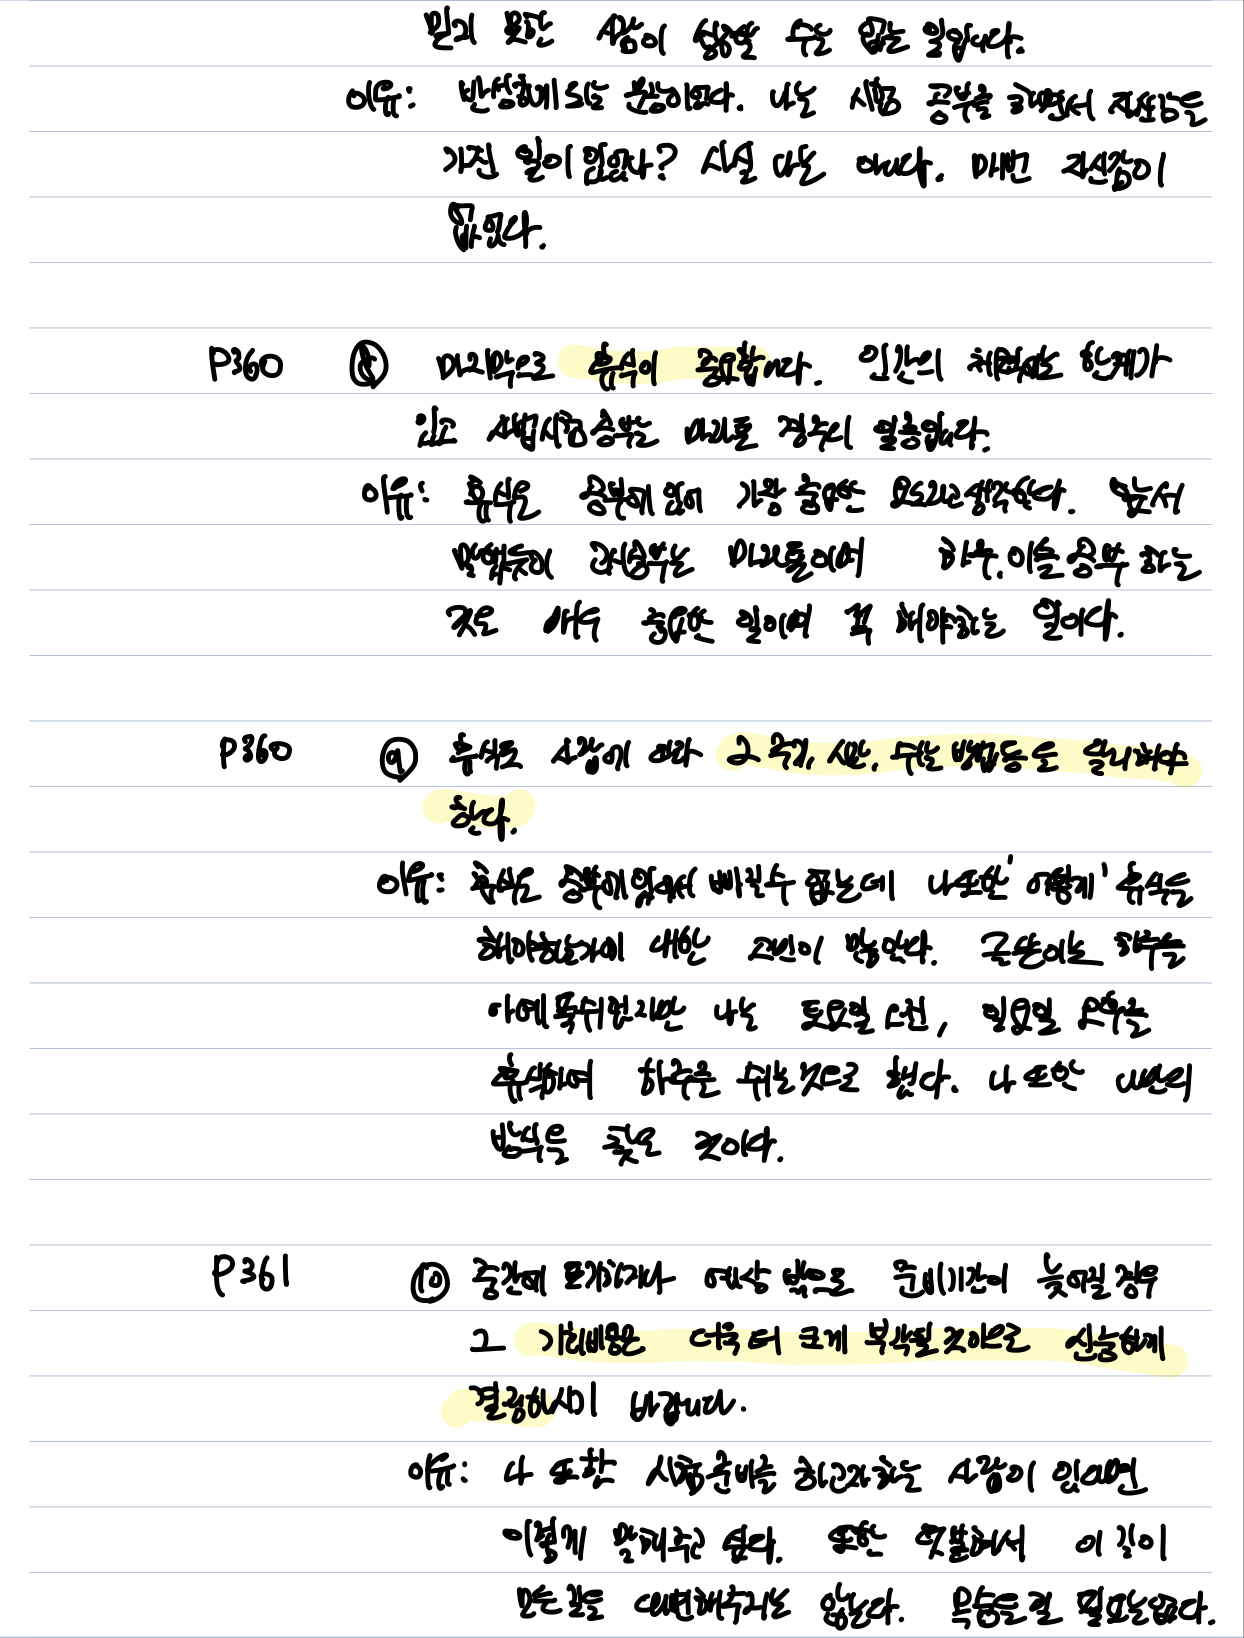 믿지 못한 사람이 성공할 수는 없는 일입니다.
이유: 반성하게 되는 문장이었다. 나는 시험 공부를 하면서 자신감을
가진 일이 있었나? 사실 나는 아니다. 매번 자신감이
없었다.
P360 ⑧ 마지막으로 휴식이 중요합니다. 인간의 체력에는 한계가
있고 사법시험공부는 마라톤 경주의 일종입니다.
이유: 휴식은 공부에 있어 가장 중요한 요소라고 생각한다. 앞서
말했듯이 고시공부는 마라톤이며 하루, 이틀 공부 하는
것도 매우 중요한 일이며 꼭 해야하는 일이다.
P360 ⑨ 휴식도 사람에 따라 그 주기, 시간, 쉬는 방법등도 달리해야
한다.
이유: 휴식은 공부에 있어서 빠질수 없는데 나또한 '어떻게' 휴식을
해야하는가에 대한 고민이 많았다. 글쓴이는 하루를
아예 푹쉬었지만 나는 토요일 오전, 일요일 오후를
휴식하여 하루를 쉬는것으로 했다. 나 또한 나만의
방식을 찾은 것이다.
P361 ⑩ 중간에 포기하거나 예상 밖으로 준비기간이 늦어질 경우
그 기회비용은 더욱 더 크게 부각될 것이므로 신중하게
결정하시기 바랍니다.
이유: 나 또한 시험준비를 하고자하는 사람이 있다면
이렇게 말해주고 싶다. 또한 덧붙여서 이 길이
모든길을 대변해주지는 않는다. 목숨을걸 필요는없다.